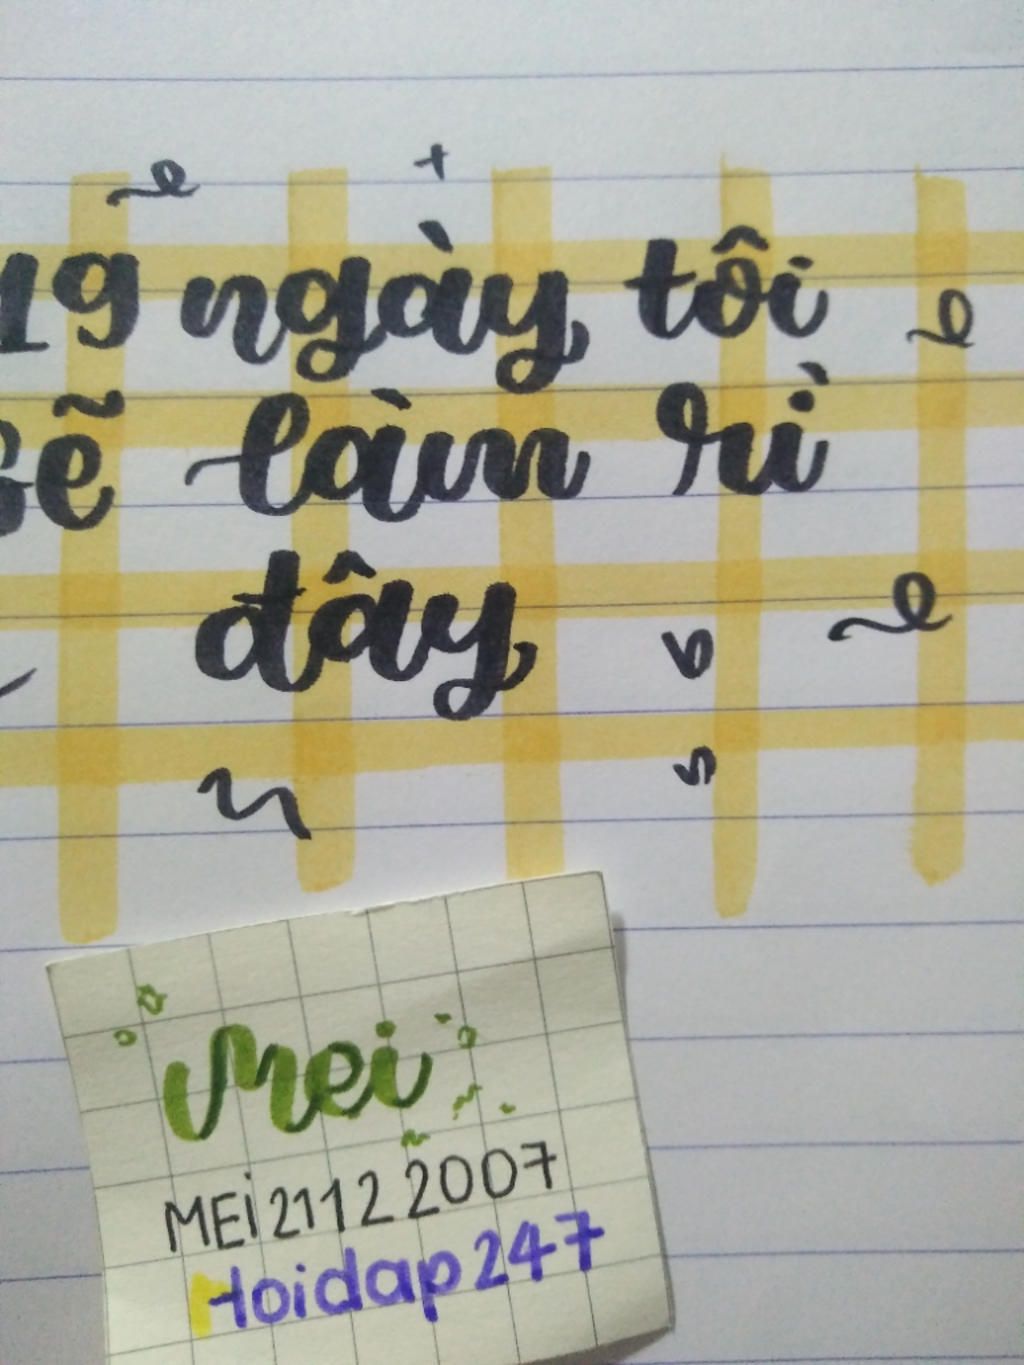 19 ngày tôi
sẽ làm rì
đây
Mei
MEi21122007
Hoidap247